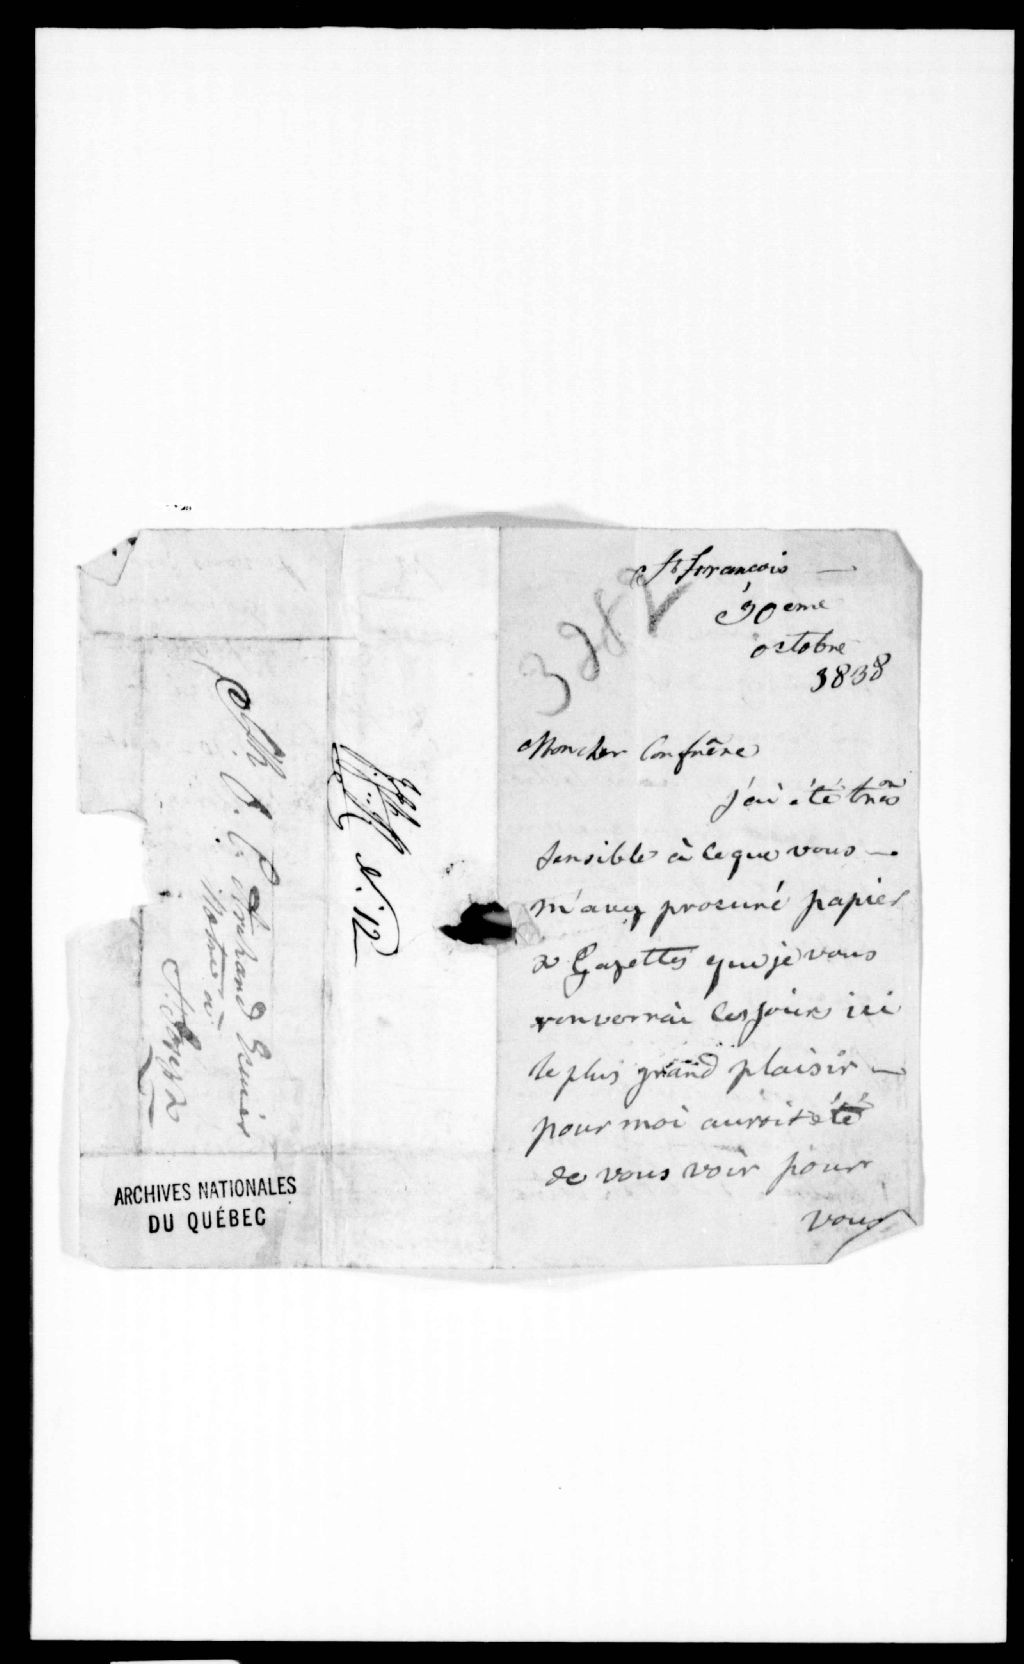 St François
30eme
octobre
1838
3282
Mon cher Confrère
j'ai été très
sensible à ce que vous
m'avez procuré papier
& Gazettes que je vous
ronverrai ces jours ici
le plus grand plaisir
pour moi auroit été
de vous voir pour
vous
N. 12
Ecuier
Notaire à
ARCHIVES NATIONALES
DU QUÉBEC